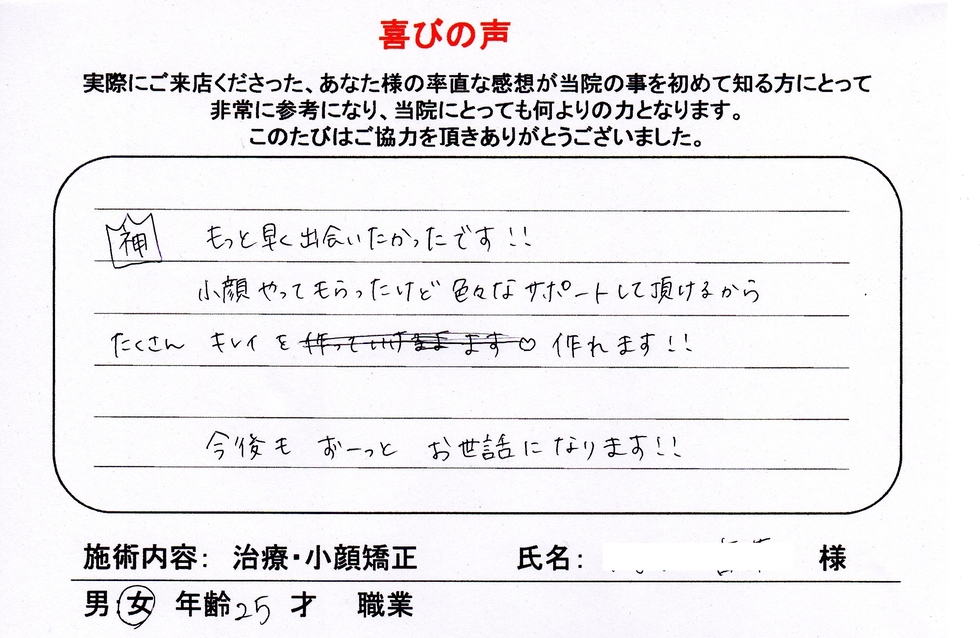 喜びの声
実際にご来店くださった、あなた様の率直な感想が当院の事を初めて知る方にとって
非常に参考になり、当院にとっても何よりの力となります。
このたびはご協力を頂きありがとうございました。
神 もっと早く出会いたかったです!!
小顔やってもらったけど色々なサポートして頂けるから
たくさん キレイを 作っていけます ます♡ 作れます!!
今後も ずーっと お世話になります!!
施術内容: 治療・小顔矯正 氏名: 様
男・女 年齢 25 才 職業